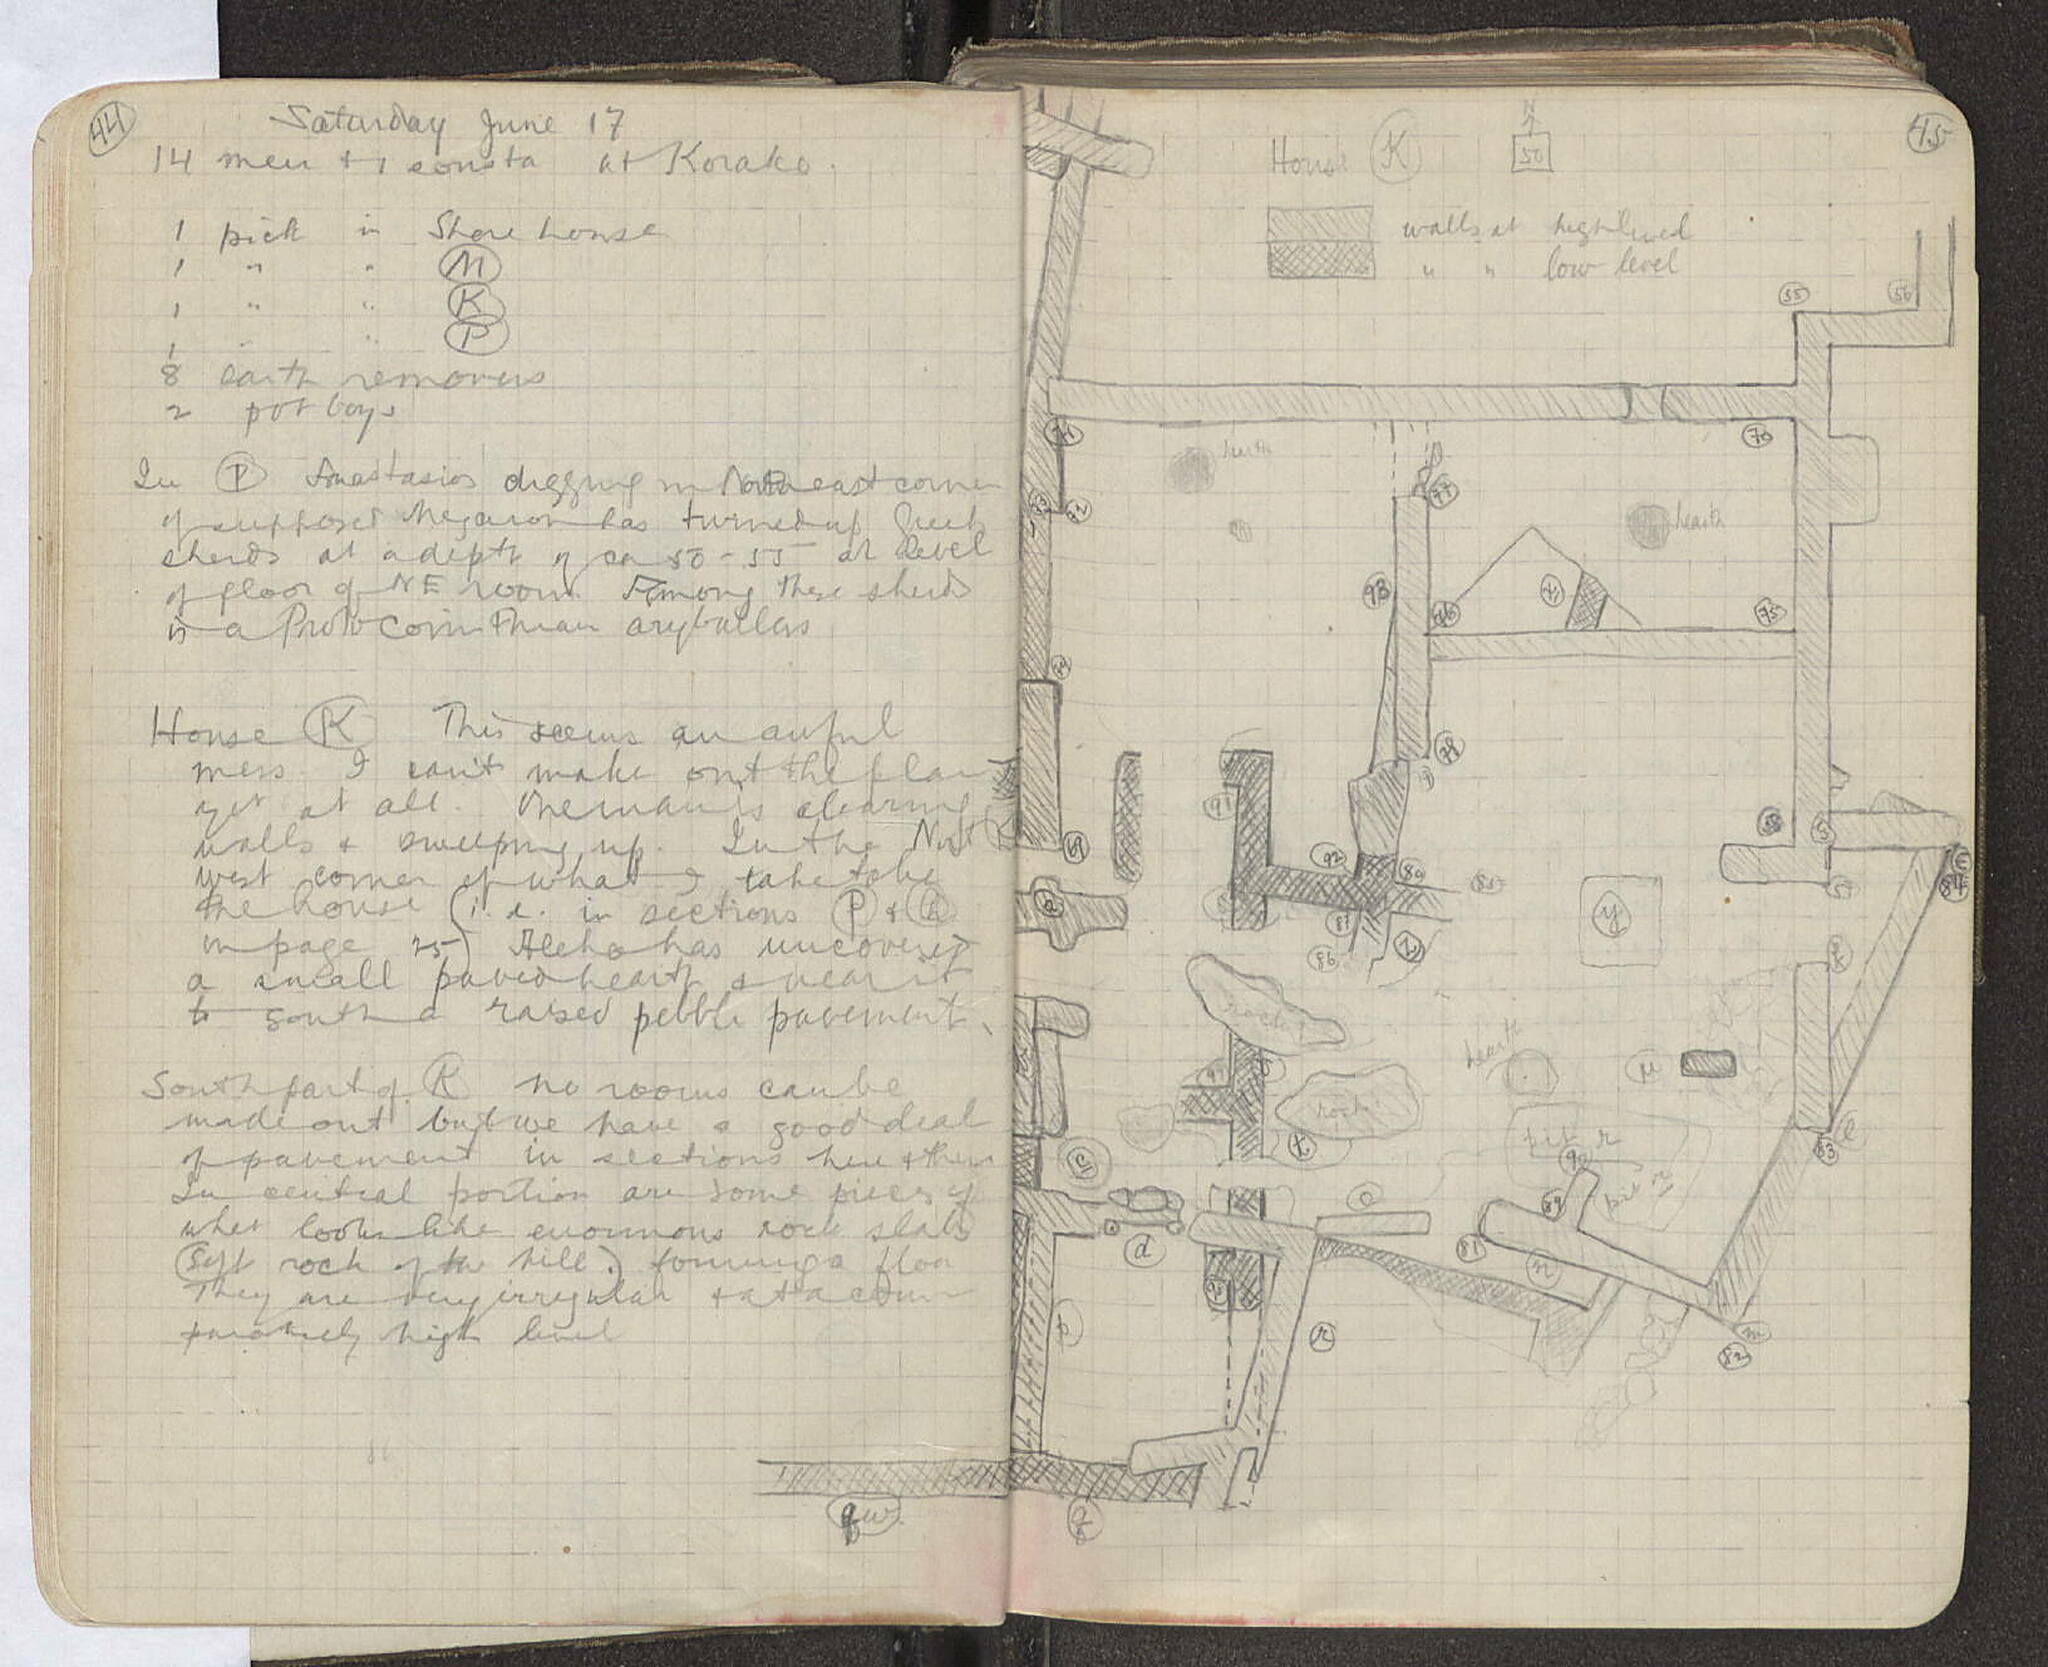 44
Saturday June 17
14 men + 1 sousta at Korako.
1 pick in Shore house
1 " " M
1 " " K
1 " " P
8 earth removers
2 pot boys
In P Anastasios digging in North east corner
of supposed Megaron has turned up Greek
sherds at a depth of ca 50-55 at level
of floor of NE room. Among these sherds
is a Proto Corinthian aryballos
House K This seems an awful
mess. I can't make out the plan
yet at all. One man is clearing
walls + sweeping up. In the North
west corner of what I take to be
the house (i.e. in sections P +
in page 25) Aleko has uncovered
a small paved hearth + near it
to south a raised pebble pavement.
South part of K no rooms can be
made out but we have a good deal
of pavement in sections here + there
In central portion are some pieces of
what looks like enormous rock slabs
(soft rock of the hill.) forming a floor
They are very irregular + at a com-
paratively high level
qw
45
House K
N
50
walls at high level
" " low level
55 56
71 70
hearth
77
72
hearth
93
76 75
78
91
92 80
85
81
86
y
57
rock
hearth
rock
t
pit r
90
pit
83
89
81
o
d
n
p
r
m
82
q